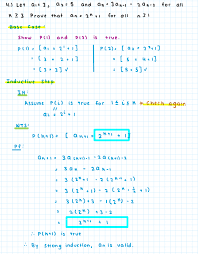 4.) Let a₁ = 3, a₂ = 5 and aₙ = 3aₙ₋₁ - 2aₙ₋₂ for all
n ≥ 3. Prove that aₙ = 2ⁿ + 1 for all n ≥ 1
Base Case:
Show P(1) and P(2) is true.
P(1) = [a₁ = 2¹ + 1] P(2) = [a₂ = 2² + 1]
= [3 = 2 + 1] = [5 = 4 + 1]
= [3 = 3] ✓ = [5 = 5] ✓
Inductive Step
IH
Assume P(i) is true for 1 ≤ i ≤ k * check again
aᵢ = 2ⁱ + 1
WTS:
P(k+1) = [aₖ₊₁ = 2ᵏ⁺¹ + 1]
PF
aₖ₊₁ = 3a₍ₖ₊₁₎₋₁ - 2a₍ₖ₊₁₎₋₂
= 3aₖ - 2aₖ₋₁
= 3(2ᵏ + 1) - 2(2ᵏ⁻¹ + 1)
= 3(2ᵏ) + 3 - 1(2ᵏ) - 2
= 2(2ᵏ) + 3 - 2
= 2ᵏ⁺¹ + 1
∴ P(k+1) is true
∴ By strong induction, aₙ is valid.